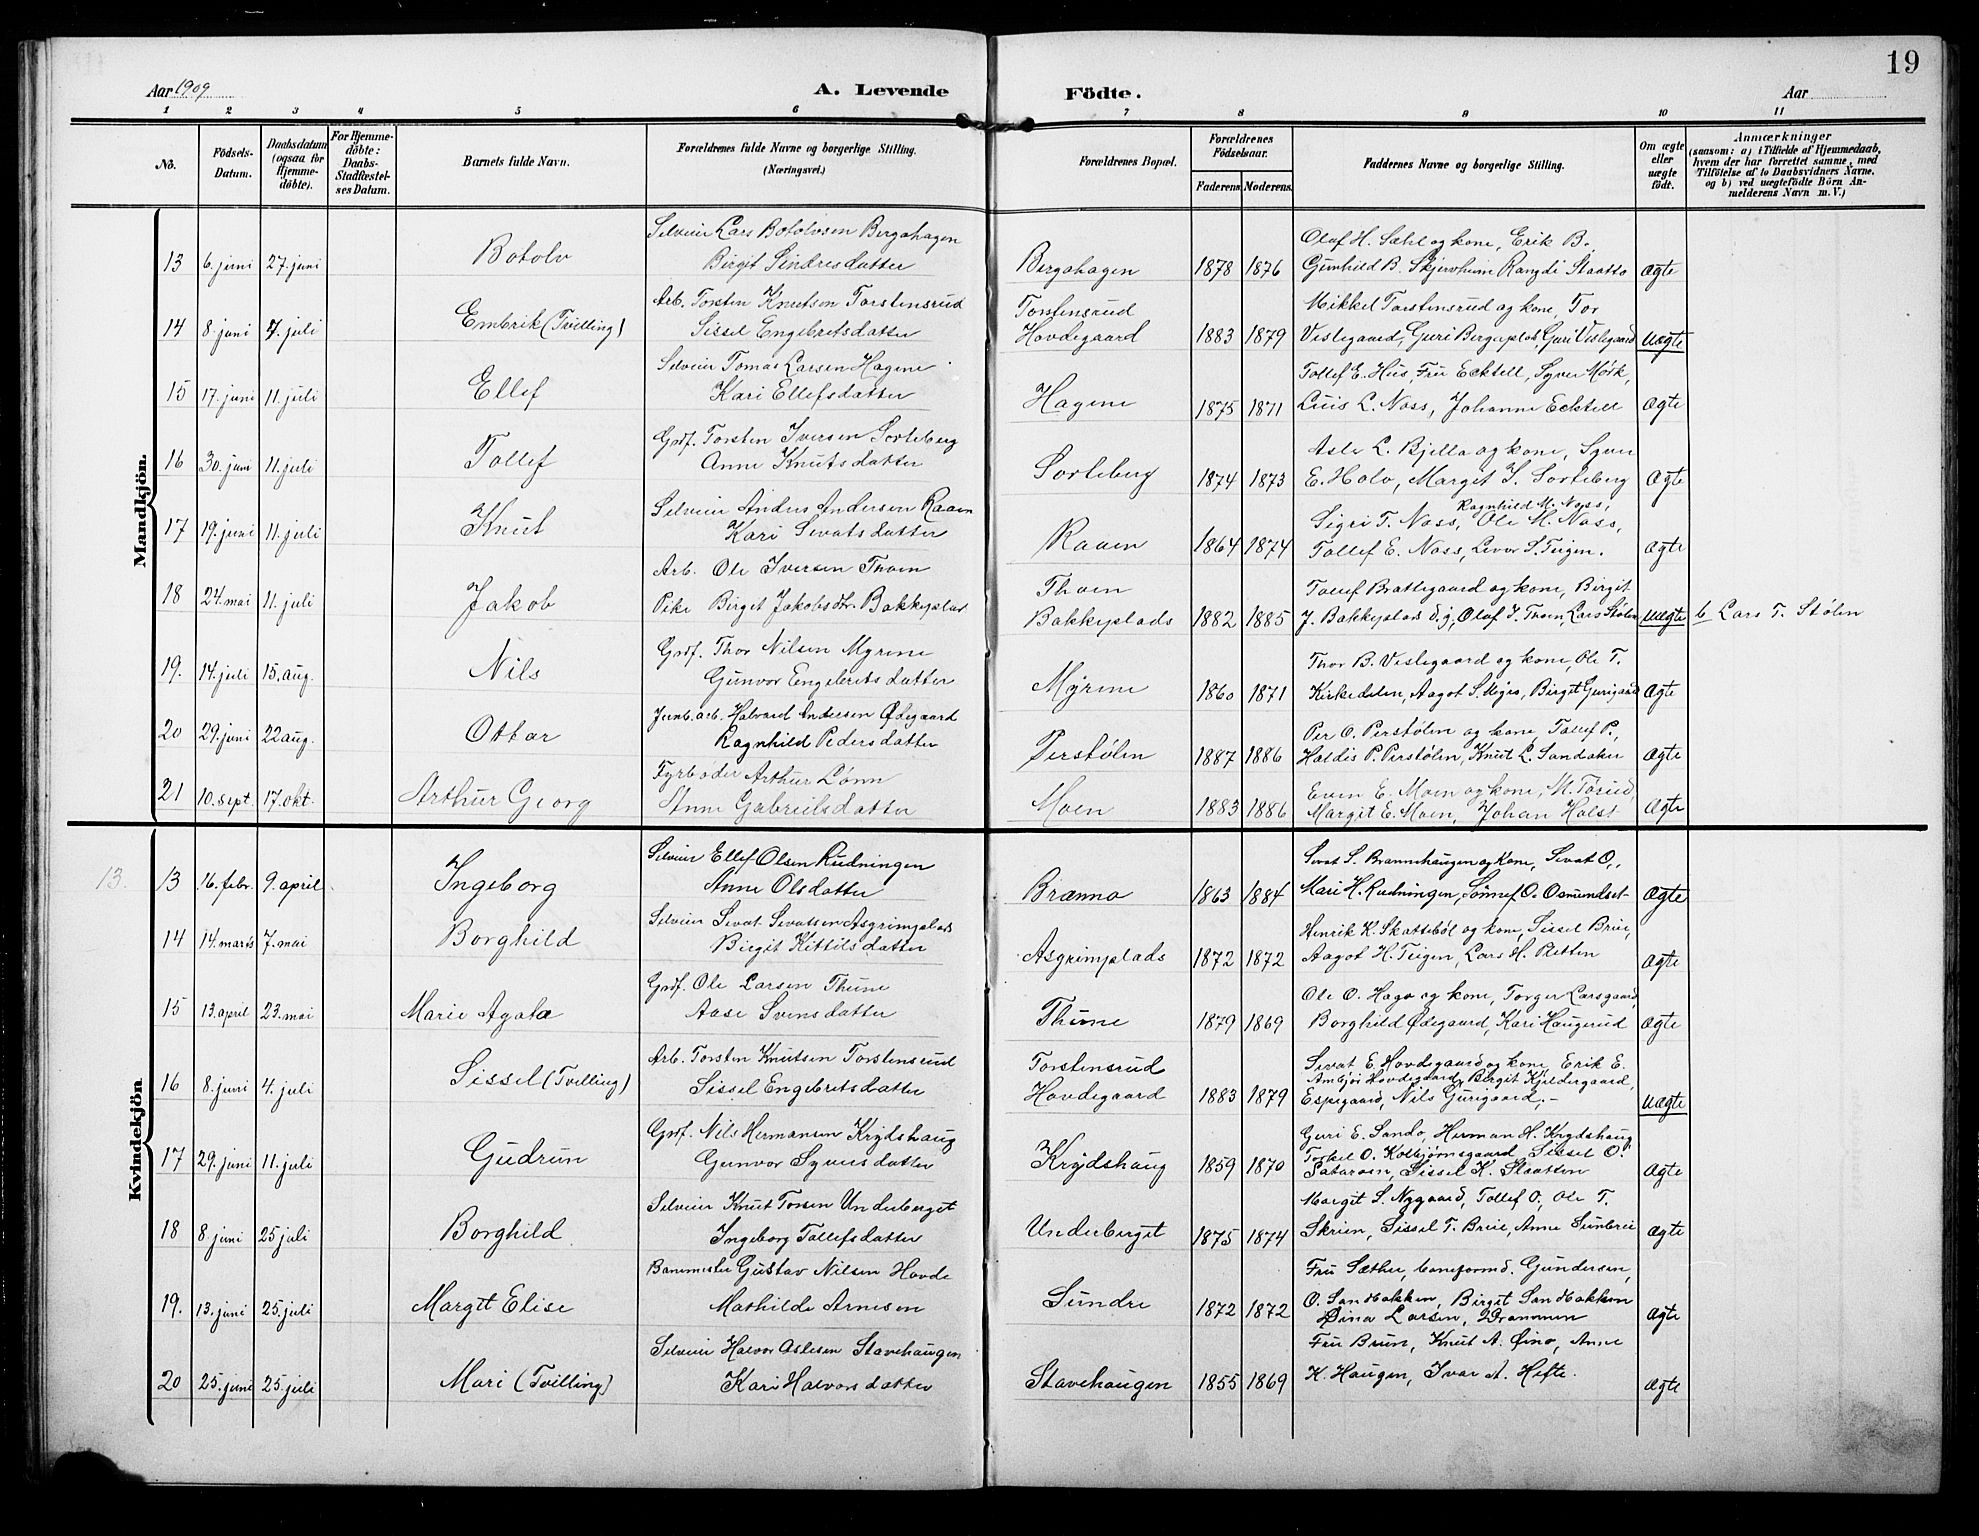 19
Aar 1909
A. Levende Födte.
Aar
1 2 3 4 5 6 7 8 9 10 11
No.
Födsels-Datum.
Daabsdatum (ogsaa for Hjemme-döbte).
For Hjemme-döbte: Daabs-Stadfæstel-ses Datum.
Barnets fulde Navn.
Forældrenes fulde Navne og borgerlige Stilling. (Næringsvei.)
Forældrenes Bopæl.
Forældrenes Födselsaar.
Faderens. Moderens.
Faddernes Navne og borgerlige Stilling.
Om ægte eller uægte födt.
Anmærkninger
(saasom: a) i Tilfælde af Hjemmedaab, hvem der har forrettet samme, med Tilföielse af to Daabsvidners Navne, og b) ved uægtefödte Börn An-melderens Navn m. V.)
Mandkjön.
Selveier Lars Botolvsen Bergahagen
Olaf H. Sæhl og kone, Erik B.
13 6. juni 27. juni Botolv Birgit Sindresdatter Bergahagen 1878 1876 Gunhild B. Skjervheim Rangdi Staatto ægte
Arb. Torsten Knutsen Torstensrud Torstensrud Mikkel Torstensrud og kone, Tor
14 8. juni 4. juli Embrik (Tvilling) Sissel Engebretsdatter Hovdegaard 1883 1879 Veslegaard, Guri Bergaplads, Guri Veslegaard uægte
Selveier Tomas Larsen Hagene
Tollef E. Hus, Fru Ecktell, Syver Mørk,
15 17. juni 11. juli Ellef Kari Ellefsdatter Hagene 1875 1871 Luis L. Næss, Johanne Ecktell ægte
Grdf. Torsten Iversen Sorteberg
Asle L. Bjella og kone, Syver
16 30. juni 11. juli Tollef Anne Knutsdatter Sorteberg 1874 1873 E. Holv, Margit I. Sorteberg ægte
Selveier Anders Andersen Raaen
Ragnhild M. Næss,
Sigri T. Næss, Ole M. Næss,
17 19. juni 11. juli Knut Kari Sevatsdatter Raaen 1864 1874 Tollef E. Næss, Levor S. Teigen. ægte
Arb. Ole Iversen Thoen Thoen Tollef Brattegaard og kone, Birgit
18 24. mai 11. juli Jakob Pike Birget Jakobsdtr. Bakkeplads Bakkeplads 1882 1885 J. Bakkeplads d.y., Olaf I. Thoen, Lars Stølen uægte b Lars T. Stølen
Grdf. Thor Nilsen Myrene
Thor B. Veslegaard og kone, Ole T.
19. 14. juli 15. aug. Nils Gunvor Engebretsdatter Myrene 1860 1871 Kirkedelen, Aagot S. Uges, Birgit Gurigaard ægte
Jernb. arb. Halvard Andersen Ødegaard
Per O. Perstølen og kone, Tollef P.,
20 29. juni 22 aug. Ottar Ragnhild Pedersdatter Perstølen 1887 1886 Haldis P. Perstølen, Knut L. Sandaker ægte
Fyrbøder Arthur Lønn
Even E. Moen og kone, M. Tørud,
21 10. sept. 17. okt. Arthur Georg Anne Gabrielsdatter Moen 1883 1886 Margit E. Moen, Johan Holst ægte
Kvindekjön.
Selveier Ellef Olsen Rudningen
Sevat S. Brænnehaugen og kone, Sevat O.,
13. 13 16. febr. 9. april Ingeborg Anne Olsdatter Brænno 1863 1884 Mari H. Rudningen, Sønnef O. Osmundset ægte
Selveier Sevat Sevatsen Asgrimplads
Henrik K. Skattebøl og kone, Sissel Breie,
14 14. marts 7. mai Borghild Birgit Kittilsdatter Asgrimplads 1872 1872 Aagot H. Teigen, Lars H. Pletten ægte
Grdf. Ole Larsen Thune
Ole O. Haga og kone, Torger Larsgaard,
15 13. april 23. mai Marie Agatæ Aase Svensdatter Thune 1879 1869 Borghild Ødegaard, Kari Haugerud ægte
Arb. Torsten Knutsen Torstensrud Torstensrud Sevat E. Hovdegaard og kone, Erik E.
Ambjør Hovdegaard, Birgit Kjeldergaard,
16 8. juni 4. juli Sissel (Tvilling) Sissel Engebretsdatter Hovdegaard 1883 1879 Espegaard, Nils Gurigaard,- uægte
Grdf. Nils Hermansen Krydshaug
Guri E. Sando, Herman H. Krydshaug,
Torkel O. Kolbjørnsgaard, Sissel O.
17 29. juni 11. juli Gudrun Gunvor Syversdatter Krydshaug 1859 1870 Sataroen, Sissel K. Staatten ægte
Selveier Knut Torsen Underberget
Margit S. Nygaard, Tollef O., Ole T.
18 8. juni 25 juli Borghild Ingeborg Tollefsdatter Underberget 1875 1874 Skrien, Sissel T. Breie, Anne Sunbrei ægte
Banemester Gustav Nilsen Hovde
Fru Sæther, baneformd. Gundersen,
O. Sandbakken, Birgit Sandbakken
19. 13. juni 25. juli Margit Elise Mathilde Arnesen Sundre 1872 1872 Dina Larsen, Drammen ægte
Selveier Halvor Aslesen Stavehaugen
Fru Brun, Knut A. Øino, Anne
20 25. juni 25. juli Mari (Tvilling) Kari Halvorsdatter Stavehaugen 1855 1869 K. Haugen, Ivar A. Hefte. ægte